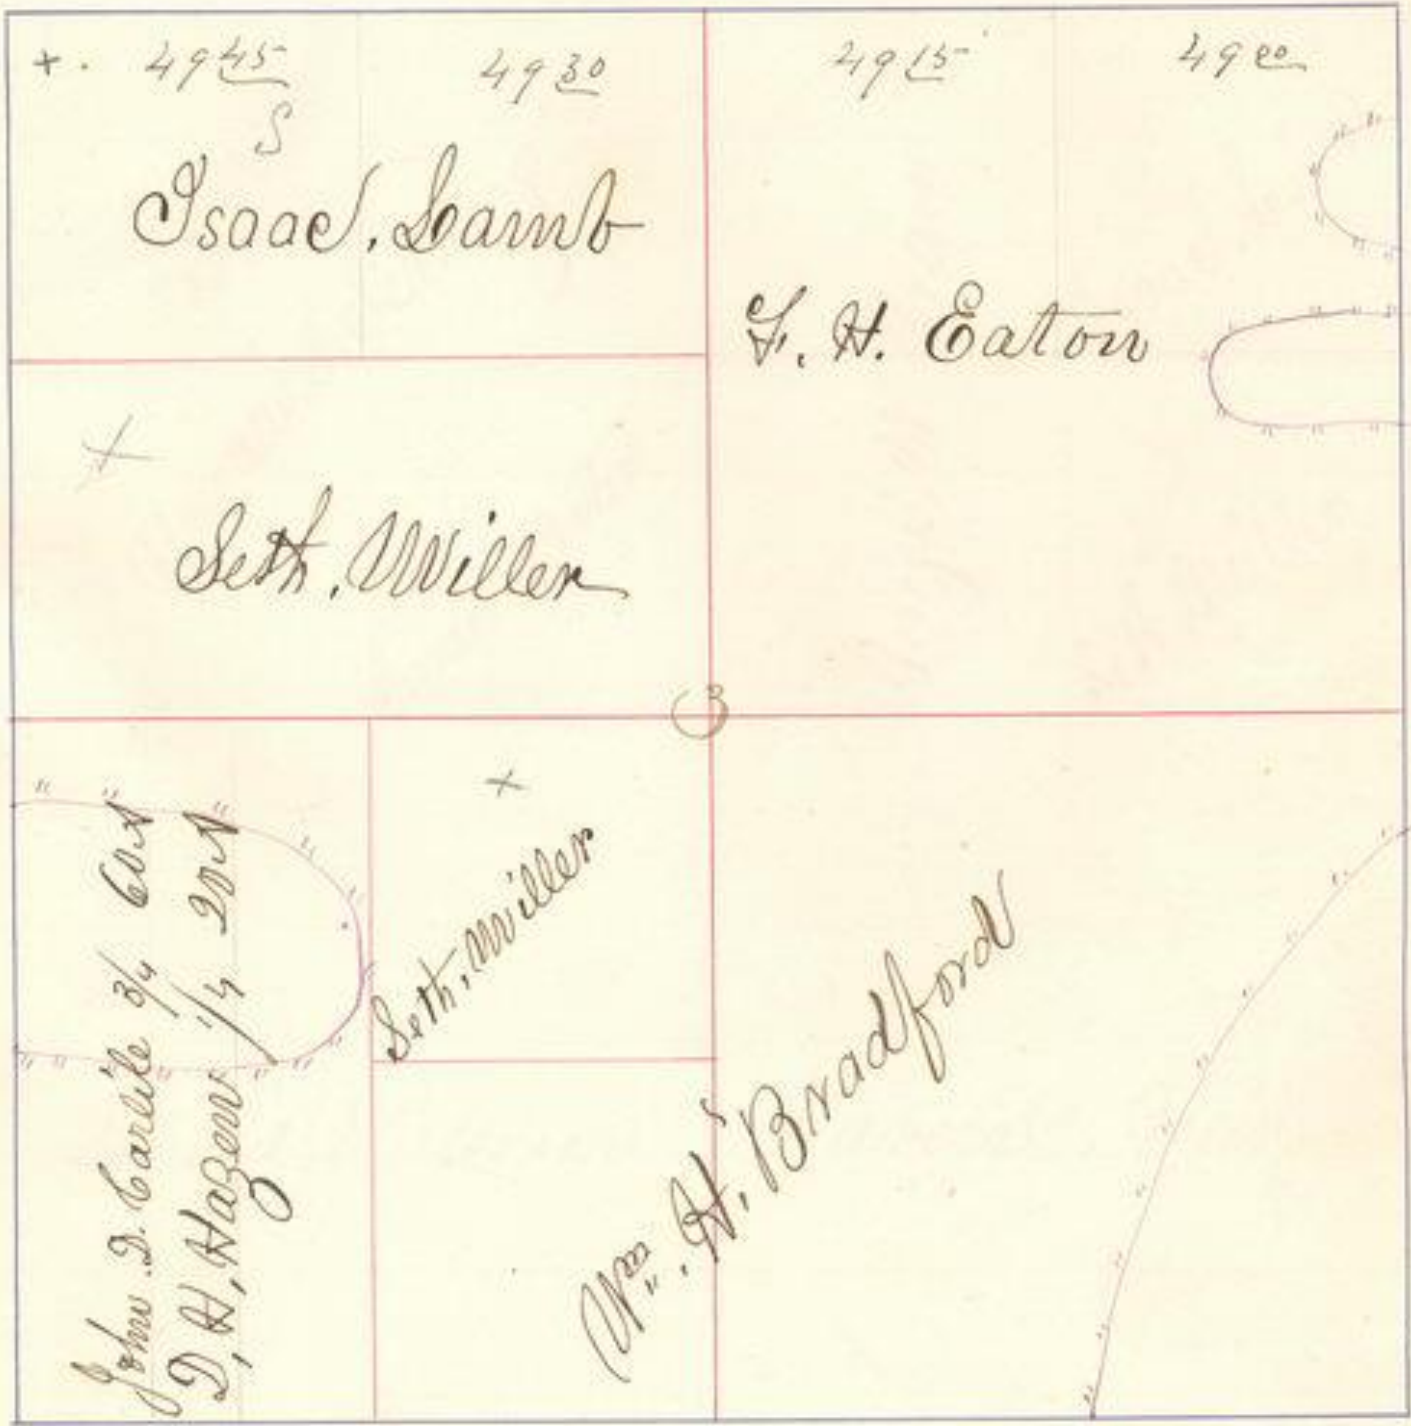 +. 49 45 49 30 49 15 49 00
S
Isaac. Lamb
F. H. Eaton
+
Seth. Miller
3
+
Seth. Miller
John D. Carlile 3/4 60A
D. H. Hazen 1/4 20A
Wm. H. Bradford